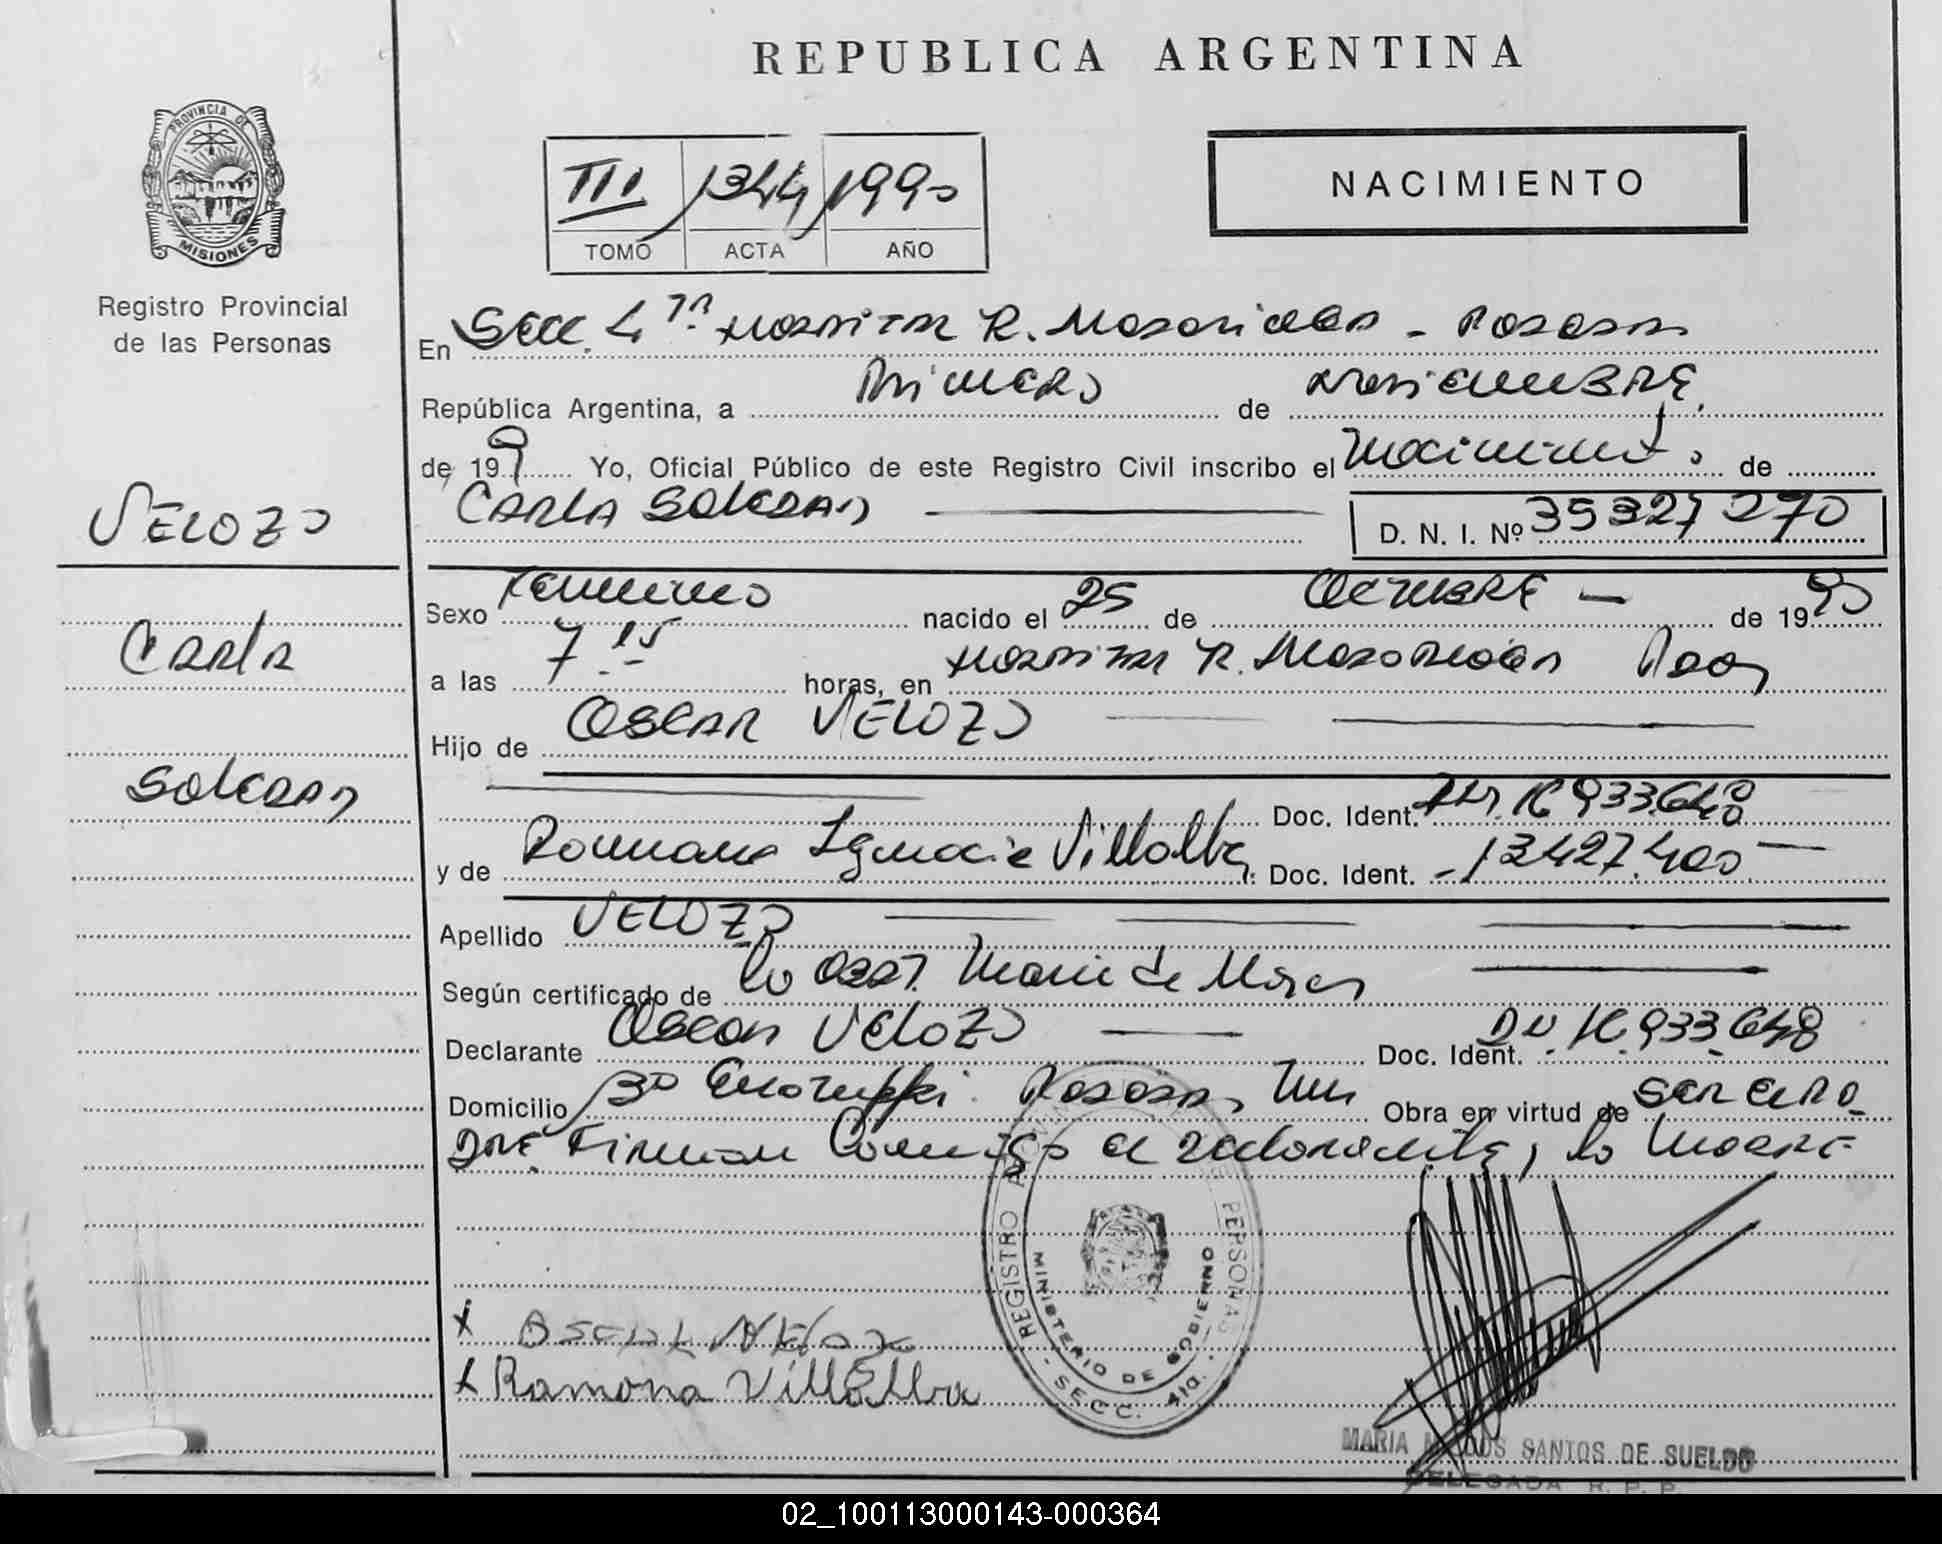 REPUBLICA ARGENTINA
PROVINCIA DE
MISIONES
Registro Provincial
de las Personas
III 1344 1990
TOMO ACTA AÑO
NACIMIENTO
En Secc. 4ta Hospital R. Madariaga - Posadas
República Argentina, a Primero de Noviembre
de 199 Yo, Oficial Público de este Registro Civil inscribo el Nacimiento de
CARLA SOLEDAD D. N. I. Nº 35327270
VELOZO
Carla
Soledad
Sexo Femenino nacido el 25 de Octubre de 1990
a las 7.15 horas, en Hospital R. Madariaga Pdas
Hijo de OSCAR VELOZO
Doc. Ident. 16.933.648
y de Ramona Ignacia Villalba Doc. Ident. 13427.400
Apellido VELOZO
Según certificado de la Obst. Maria de
Declarante Oscar VELOZO Doc. Ident. DU 16.933.648
Domicilio Posadas, Mnes Obra en virtud de ser el Pa
dre. Firman Conmigo el declarante, la Madre
x OSCAR VELOZO
x Ramona Villalba
REGISTRO PERSONAS
MINISTERIO DE GOBIERNO
- SECC. 4ta. -
MARIA SANTOS DE SUELDO
DELEGADA R. P. P.
02_100113000143-000364